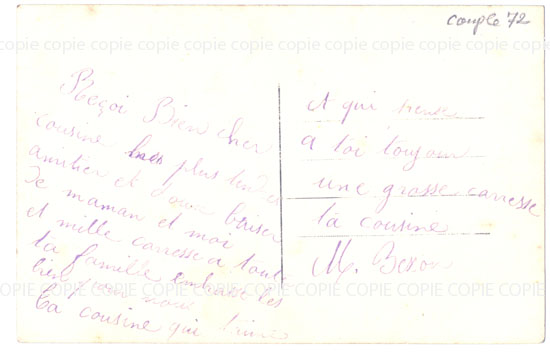 couple 72
COPIE COPIE COPIE COPIE COPIE COPIE COPIE COPIE COPIE COPIE COPIE
Reçoi Bien cher
cousine plus tendre
amitier et doux baiser
de maman et moi
et mille carresse a toute
ta famille embrasse les
bien pour nous
ta cousine qui t'aime
et qui pense
a toi toujour
une grosse carresse
ta cousine
M.
COPIE COPIE COPIE COPIE COPIE COPIE COPIE COPIE COPIE COPIE COPIE